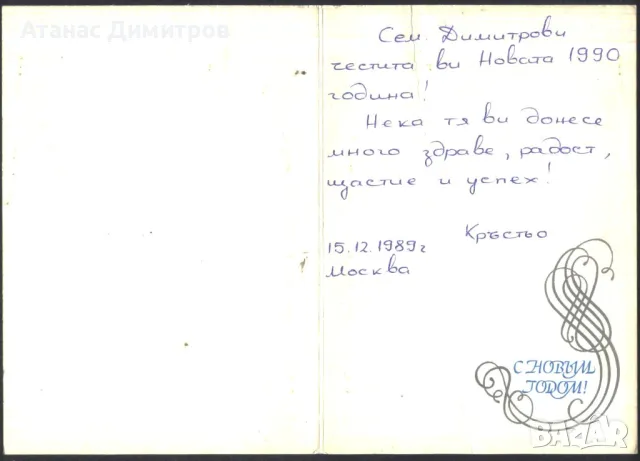 Атанас Димитров
Сем. Димитрови
честита ви Новата 1990
година!
Нека тя ви донесе
много здраве, радост,
щастие и успех!
Кръстьо
15.12.1989г
Москва
С НОВЫМ
ГОДОМ!
BAZAR